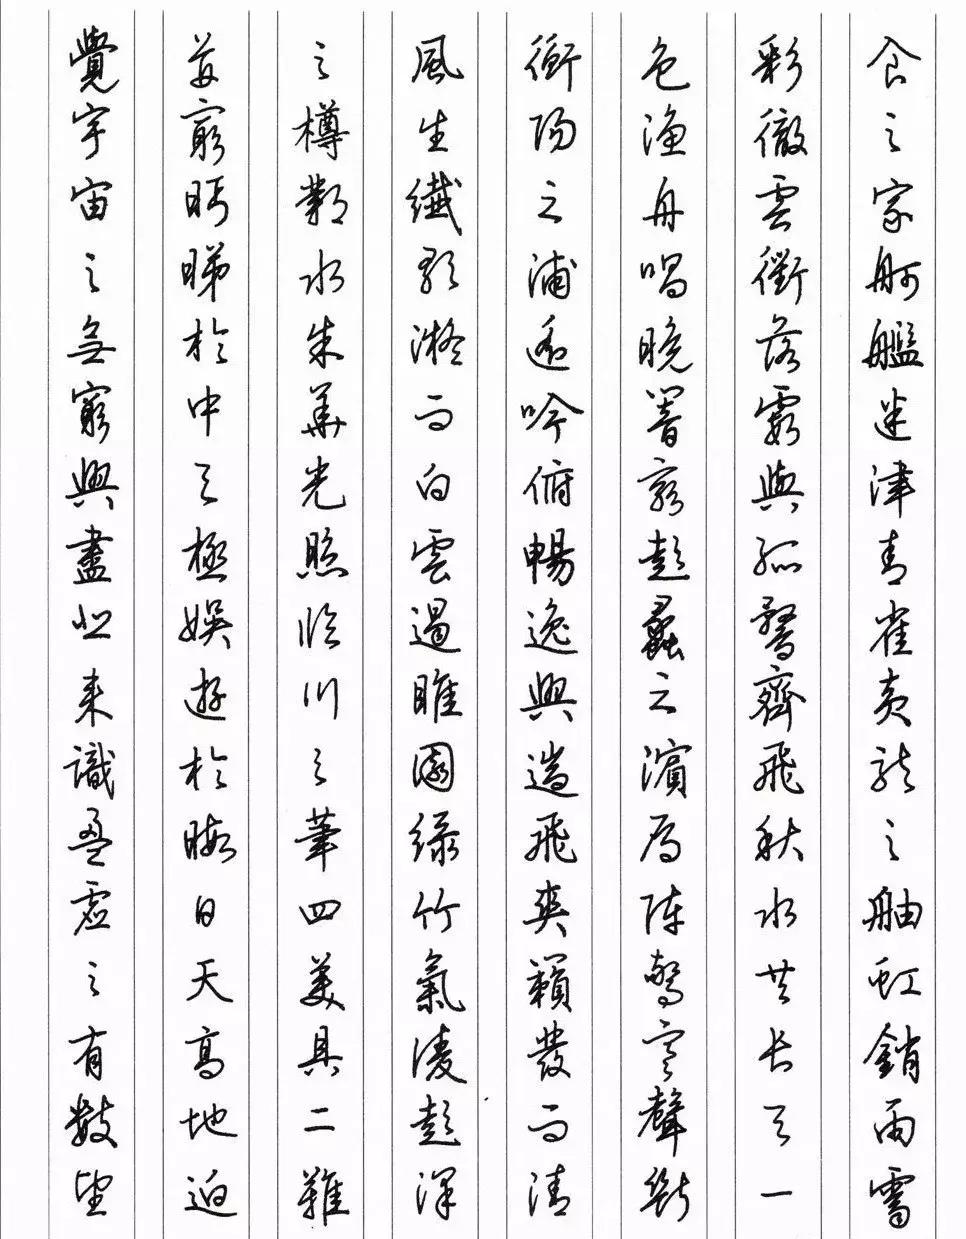 食之家舸艦迷津青雀黃龍之舳虹銷雨霽
彩徹雲衢落霞與孤鶩齊飛秋水共长天一
色漁舟唱晚響窮彭蠡之濱雁陣驚寒聲斷
衡陽之浦遙吟俯暢逸興遄飛爽籟發而清
風生纖歌凝而白雲遏睢園綠竹氣凌彭澤
之樽鄴水朱華光照臨川之筆四美具二難
並窮眄睇於中天極娛遊於暇日天高地迥
覺宇宙之無窮興盡悲來識盈虛之有數望